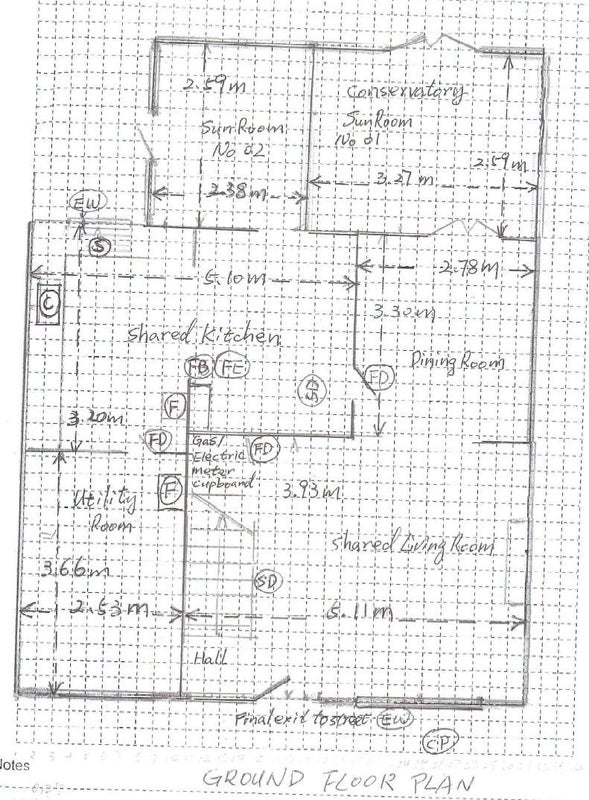 2.59m
Conservatory
SunRoom
No 01
SunRoom
No 02
2.59m
2.38m
3.27m
EW
S
5.10m
2.78m
C
3.30m
Shared Kitchen
Dining Room
FB
FE
FD
SD
F
3.20m
FD
Gas/
Electric
meter
cupboard
FD
F
3.93m
Utility
Room
Shared Living Room
3.66m
SD
2.53m
5.11m
Hall
Final exit to street
EW
CP
Notes
GROUND FLOOR PLAN